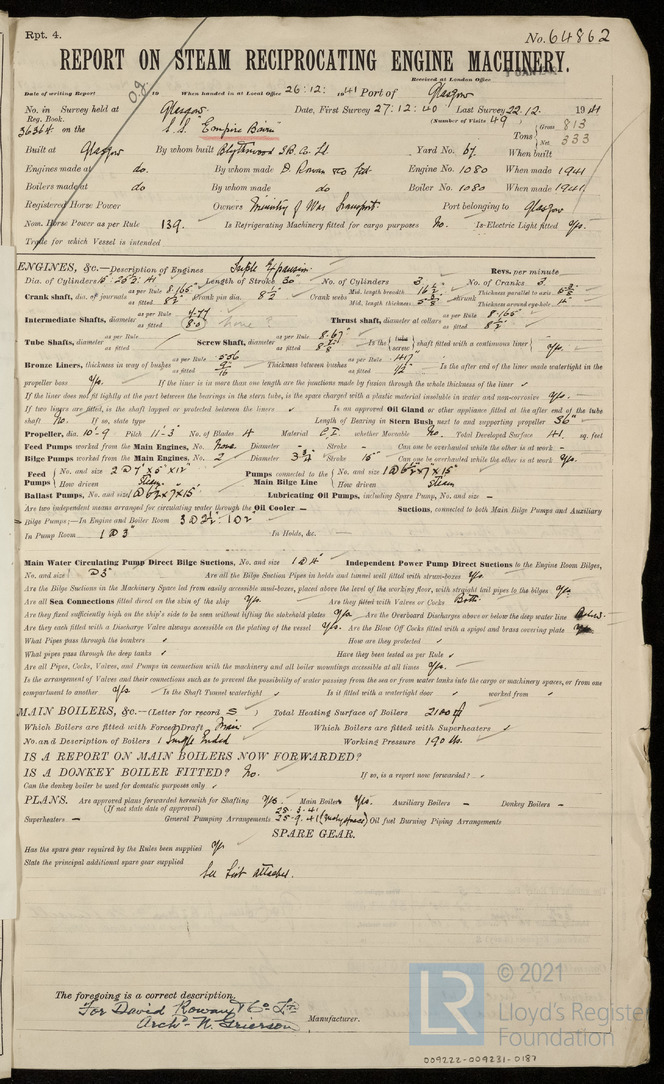 Rpt. 4.
No. 64862
REPORT ON STEAM RECIPROCATING ENGINE MACHINERY.
Received at London Office
Date of writing Report 19 When handed in at Local Office 26:12: 1941 Port of Glasgow
No. in Survey held at Glasgow Date, First Survey 27:12:40 Last Survey 22.12. 1941
Reg. Book. (Number of Visits 49
36364 on the S.S. "Empire
Tons Gross 813 Net 333
Built at Glasgow By whom built Blythswood SB. Co. Ld. Yard No. 67. When built
Engines made at do. By whom made D. Rowan & Co Ltd. Engine No. 1080 When made 1941
Boilers made at do By whom made do Boiler No. 1080 When made 1941.
Registered Horse Power Owners Ministry of War Transport. Port belonging to Glasgow
Nom. Horse Power as per Rule 139. Is Refrigerating Machinery fitted for cargo purposes No. Is Electric Light fitted Yes.
Trade for which Vessel is intended
ENGINES, &c.—Description of Engines Triple Expansion Revs. per minute
Dia. of Cylinders Length of Stroke 30" No. of Cylinders 3 No. of Cranks 3.
Crank shaft, dia. of journals as per Rule 8.165 as fitted 8½" Crank pin dia. 8½ Crank webs Mid. length breadth Mid. length thickness shrunk Thickness parallel to axis Thickness around eye-hole
Intermediate Shafts, diameter as per Rule as fitted Thrust shaft, diameter at collars as per Rule 8.165 as fitted 8½"
Tube Shafts, diameter as per Rule as fitted Screw Shaft, diameter as per Rule 8.67 as fitted 8⅞ Is the tube screw shaft fitted with a continuous liner Yes.
Bronze Liners, thickness in way of bushes as per Rule .556 as fitted 9/16 Thickness between bushes as per Rule .417" as fitted Is the after end of the liner made watertight in the
propeller boss Yes. If the liner is in more than one length are the junctions made by fusion through the whole thickness of the liner
If the liner does not fit tightly at the part between the bearings in the stern tube, is the space charged with a plastic material insoluble in water and non-corrosive Yes.
If two liners are fitted, is the shaft lapped or protected between the liners Is an approved Oil Gland or other appliance fitted at the after end of the tube
shaft No. If so, state type Length of Bearing in Stern Bush next to and supporting propeller 36"
Propeller, dia. 10'-9 Pitch 11'-3" No. of Blades 4 Material C.I. whether Moveable No. Total Developed Surface 41. sq. feet
Feed Pumps worked from the Main Engines, No. None. Diameter - Stroke - Can one be overhauled while the other is at work -
Bilge Pumps worked from the Main Engines, No. 2 Diameter Stroke 15" Can one be overhauled while the other is at work Yes.
Feed Pumps No. and size 2 @ 7" x 5" x 12" How driven Steam. Pumps connected to the Main Bilge Line No. and size 1 @ 6½" x 7" x 15" How driven Steam
Ballast Pumps, No. and size 1 @ 6½" x 7" x 15" Lubricating Oil Pumps, including Spare Pump, No. and size -
Are two independent means arranged for circulating water through the Oil Cooler - Suctions, connected to both Main Bilge Pumps and Auxiliary
Bilge Pumps;—In Engine and Boiler Room 3 @ 2½": 1 @ 2"
In Pump Room 1 @ 3" In Holds, &c. -
Main Water Circulating Pump Direct Bilge Suctions, No. and size 1 @ 4" Independent Power Pump Direct Suctions to the Engine Room Bilges,
No. and size 1 @ 3" Are all the Bilge Suction Pipes in holds and tunnel well fitted with strum-boxes Yes.
Are the Bilge Suctions in the Machinery Space led from easily accessible mud-boxes, placed above the level of the working floor, with straight tail pipes to the bilges Yes
Are all Sea Connections fitted direct on the skin of the ship Yes. Are they fitted with Valves or Cocks Both
Are they fixed sufficiently high on the ship's side to be seen without lifting the stokehold plates Yes. Are the Overboard Discharges above or below the deep water line
Are they each fitted with a Discharge Valve always accessible on the plating of the vessel Yes. Are the Blow Off Cocks fitted with a spigot and brass covering plate
What Pipes pass through the bunkers How are they protected
What pipes pass through the deep tanks Have they been tested as per Rule
Are all Pipes, Cocks, Valves, and Pumps in connection with the machinery and all boiler mountings accessible at all times Yes.
Is the arrangement of Valves and their connections such as to prevent the possibility of water passing from the sea or from water tanks into the cargo or machinery spaces, or from one
compartment to another Yes Is the Shaft Tunnel watertight Is it fitted with a watertight door worked from
MAIN BOILERS, &c.—(Letter for record S ) Total Heating Surface of Boilers
Which Boilers are fitted with Forced Draft Main Which Boilers are fitted with Superheaters
No. and Description of Boilers 1 Single Ended Working Pressure 190 lbs.
IS A REPORT ON MAIN BOILERS NOW FORWARDED?
IS A DONKEY BOILER FITTED? No. If so, is a report now forwarded?
Can the donkey boiler be used for domestic purposes only
PLANS. Are approved plans forwarded herewith for Shafting Yes. Main Boilers Yes. Auxiliary Boilers - Donkey Boilers -
(If not state date of approval)
Superheaters - General Pumping Arrangements 25.9.41 Oil fuel Burning Piping Arrangements
SPARE GEAR.
Has the spare gear required by the Rules been supplied Yes
State the principal additional spare gear supplied
See List attached.
The foregoing is a correct description,
For David Rowan & Co Ltd
Archd. N. Grierson Manufacturer.
LR © 2021
Lloyd's Register
Foundation
009222-009231-0187